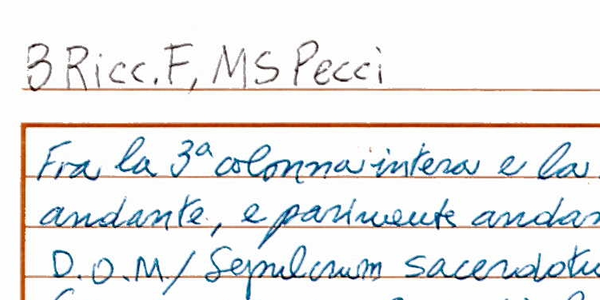 B Ricc. F, MS Pecci
Fra la 3ª colonna intera e la
andante, e parimente andan
D.O.M/ Sepulcrum sacerdotu